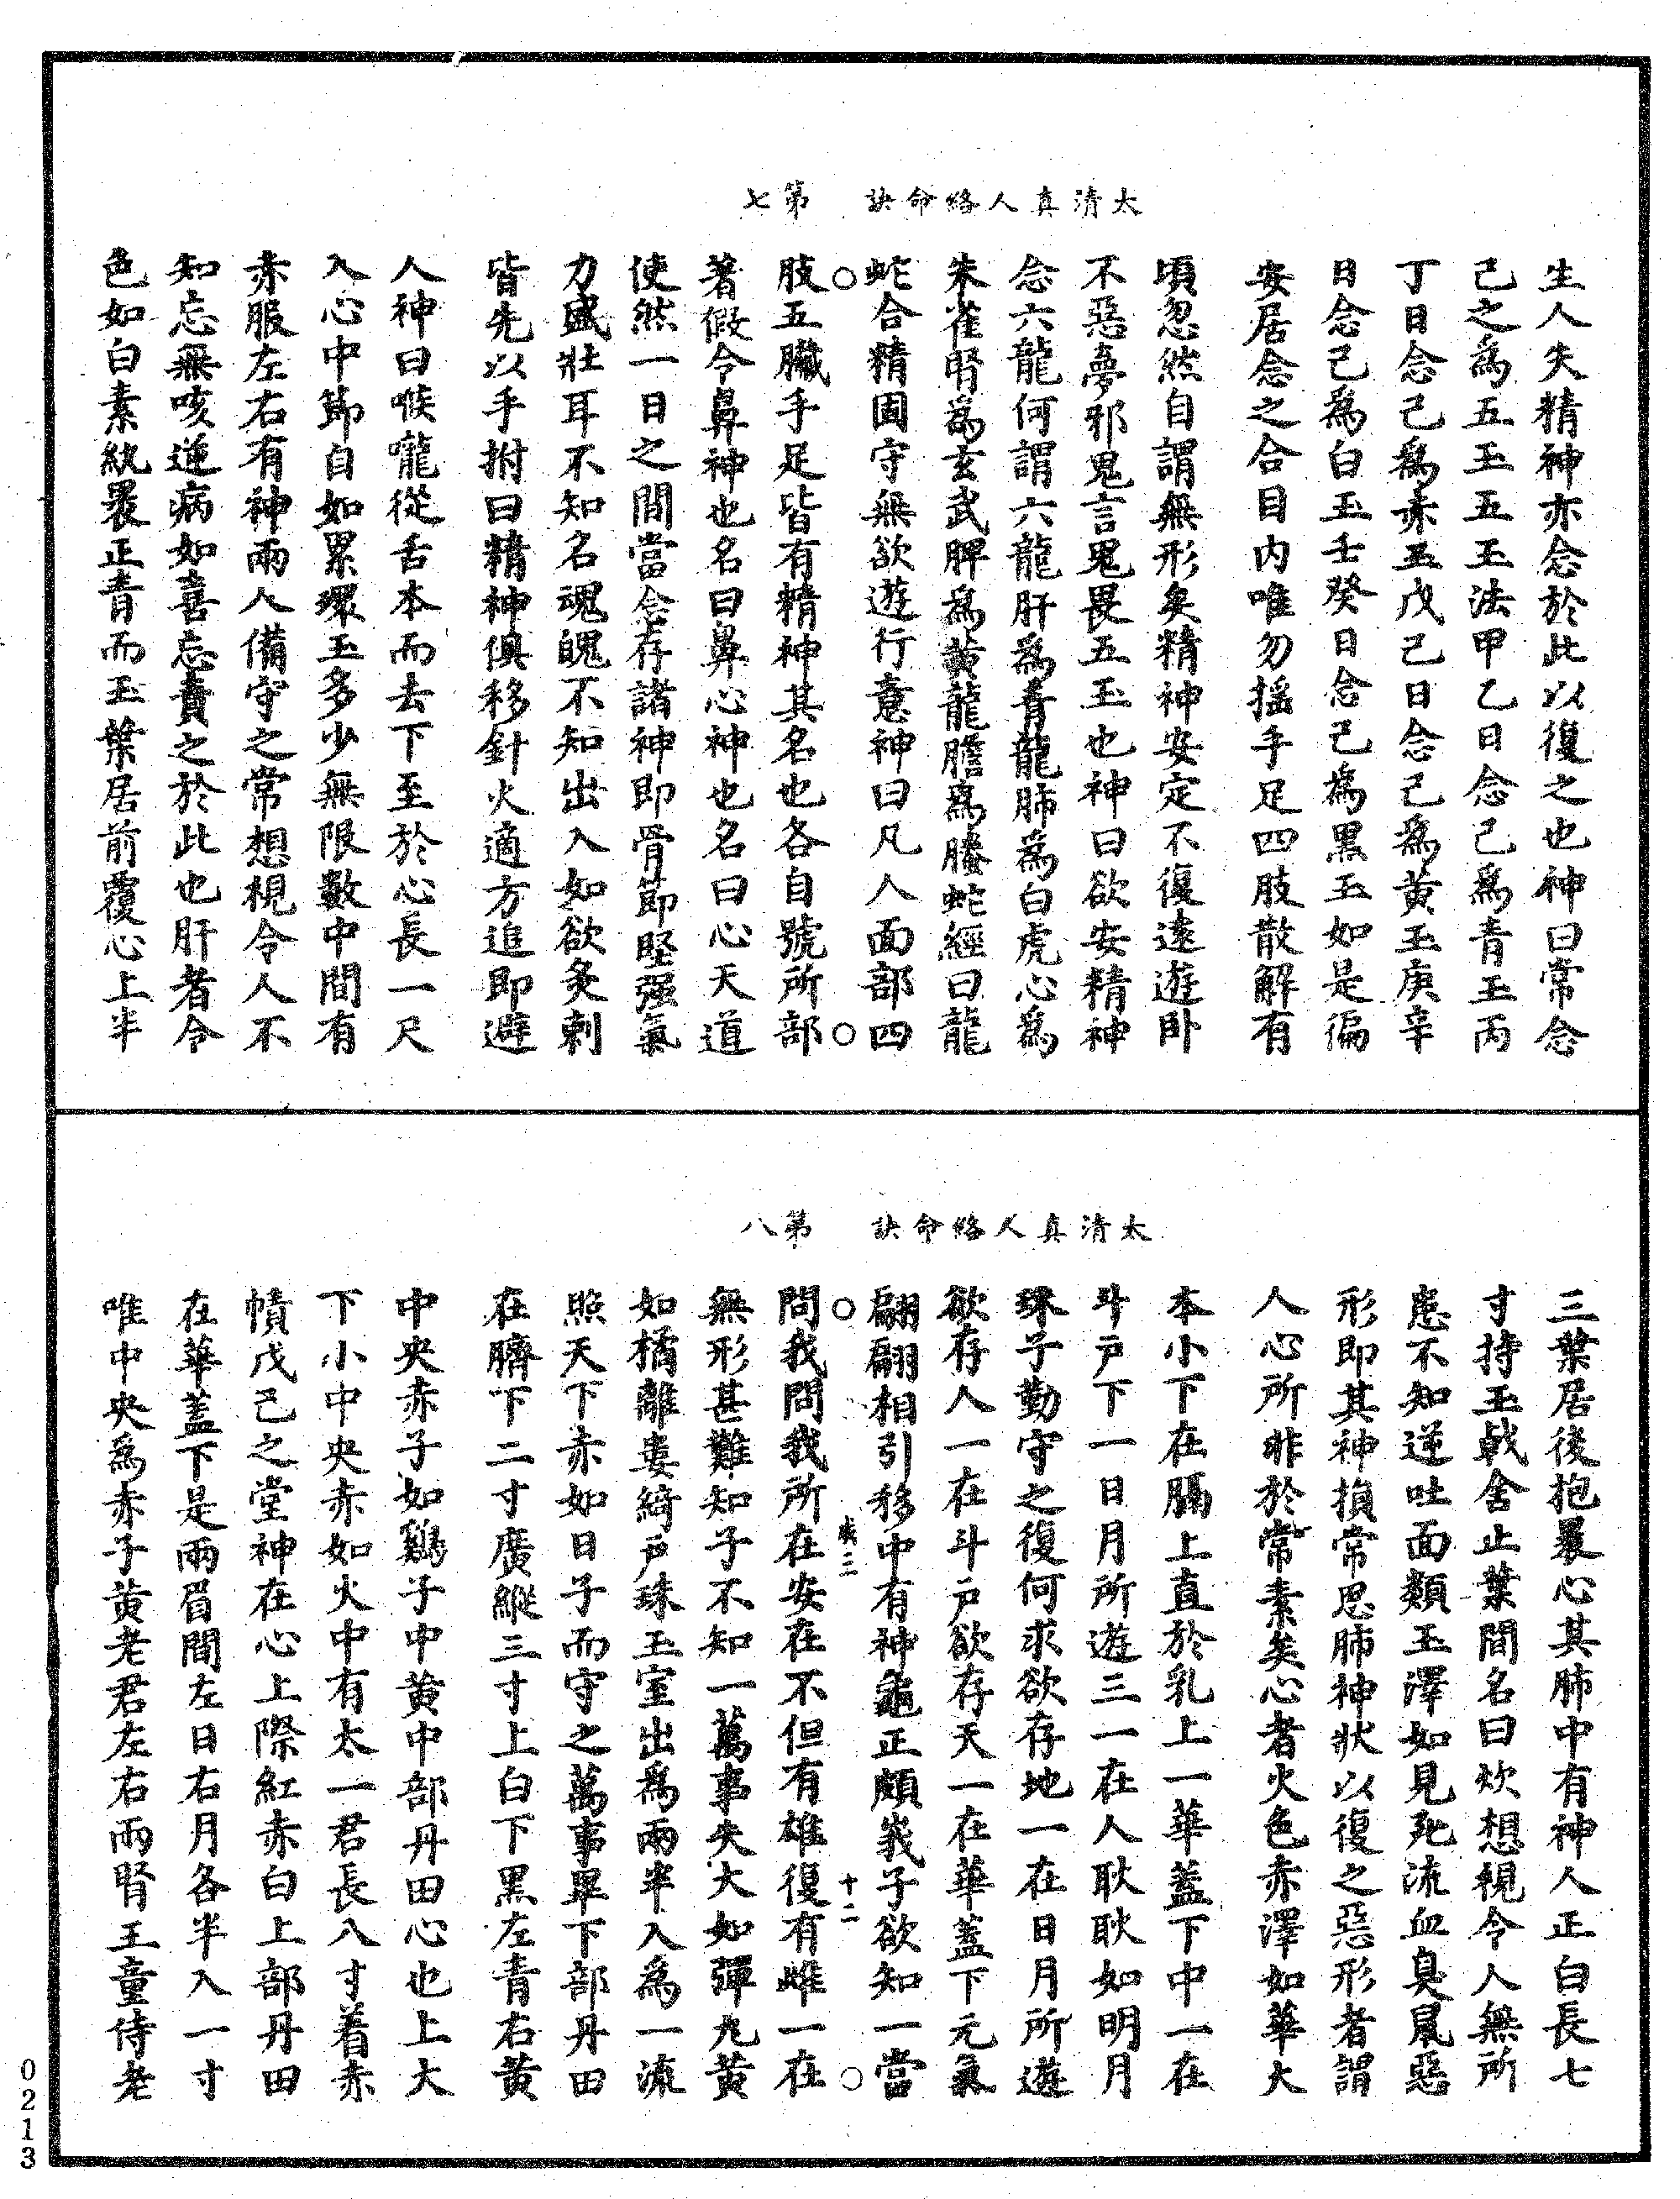 太清真人絡命訣　第七
生人失精神亦念於此以復之也神曰常念
己之爲五玉五玉法甲乙日念己爲青玉丙
丁日念己爲赤玉戊己日念己爲黄玉庚辛
日念己爲白玉壬癸日念己爲黑玉如是徧
安居念之合目内唯勿摇手足四肢散解有
頃忽然自謂無形矣精神安定不復遠遊卧
不惡夢邪鬼言鬼畏五玉也神曰欲安精神
念六龍何謂六龍肝爲青龍肺爲白虎心爲
朱雀腎爲玄武脾爲黄龍膽爲螣蛇經曰龍
蛇合精固守無欲遊行意神曰凡人面部四
肢五臟手足皆有精神其名也各自號所部
著假令鼻神也名曰鼻心神也名曰心天道
使然一日之間當念存諸神即骨節堅强氣
力盛壯耳不知名魂魄不知出入如欲灸刺
皆先以手拊曰精神俱移針火適方追即避
人神曰喉嚨從舌本而去下至於心長一尺
入心中節自如累環玉多少無限數中間有
赤服左右有神兩人備守之常想視令人不
知忘無咳逆病如喜忘責之於此也肝者令
色如白素紈裹正青而玉葉居前覆心上半
太清真人絡命訣　第八
三葉居後抱裹心其肺中有神人正白長七
寸持玉戟舍止葉間名曰炊想視令人無所
患不知逆吐面顏玉澤如見死流血臭鼠惡
形即其神損常思肺神狀以復之惡形者謂
人心所非於常素矣心者火色赤澤如華大
本小下在膈上直於乳上一華蓋下中一在
斗戶下一日月所遊三一在人耿耿如明月
珠子勤守之復何求欲存地一在日月所遊
欲存人一在斗戶欲存天一在華蓋下元氣
翩翩相引移中有神龜正頗峩子欲知一當
歲三　十二
問我問我所在安在不但有雄復有雌一在
無形甚難知子不知一萬事失大如彈丸黄
如橘離婁綺戶珠玉室出爲兩半入爲一流
照天下赤如日子而守之萬事畢下部丹田
在臍下二寸廣縱三寸上白下黑左青右黄
中央赤子如鷄子中黄中部丹田心也上大
下小中央赤如火中有太一君長八寸着赤
幘戊己之堂神在心上際紅赤白上部丹田
在華蓋下是兩眉間左日右月各半入一寸
唯中央爲赤子黄老君左右兩腎王童侍老
0213